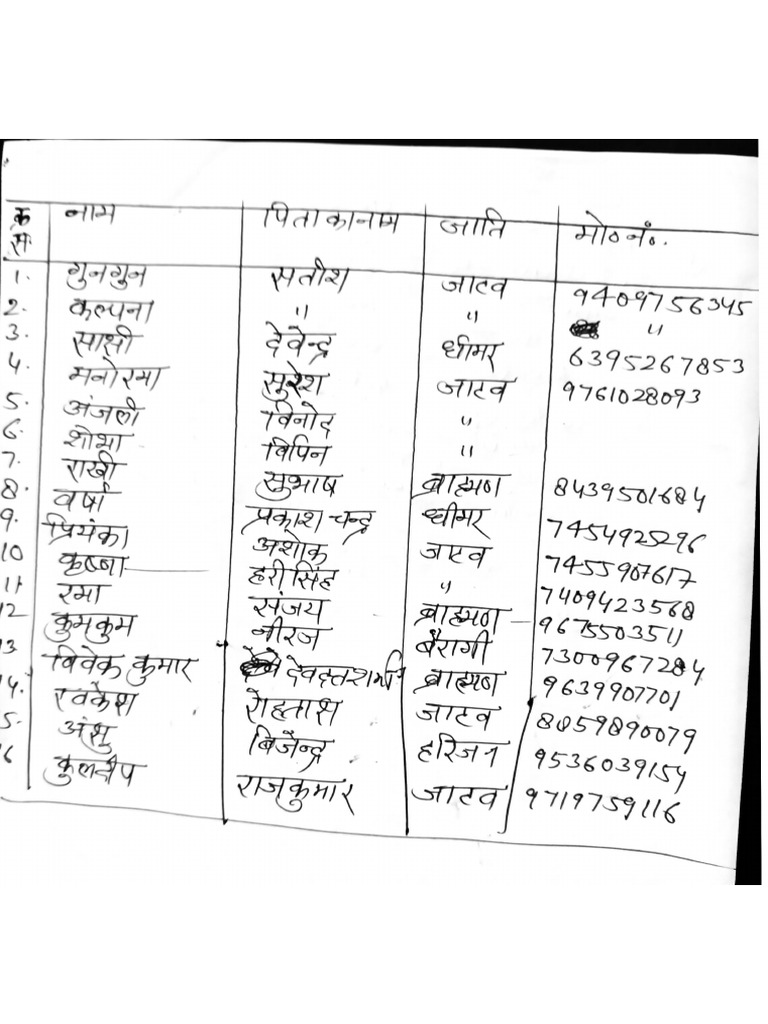 क्र सं. नाम पिता का नाम जाति मो० नं०.
1. गुनगुन सतीश जाटव 9409756345
2. कल्पना " " "
3. साक्षी देवेन्द्र धीमर 6395267853
4. मनोरमा सुरेश जाटव 9761028093
5. अंजली विनोद "
6. शोभा विपिन "
7. राखी सुभाष ब्राह्मण 8439501684
8. वर्षा प्रकाश चन्द्र धीमर 7454925296
9. प्रियंका अशोक जाटव 7455907617
10 कृष्णा हरी सिंह " 7409423568
11 रमा संजय ब्राह्मण 9675503511
12 कुमकुम नीरज बैरागी 7300967284
13 विवेक कुमार देवदत्त शर्मा ब्राह्मण 9639907701
14. रवकेश रोहताश जाटव 8859890079
5. अंशु बिजेन्द्र हरिजन 9536039154
16 कुलदीप राजकुमार जाटव 9719759116